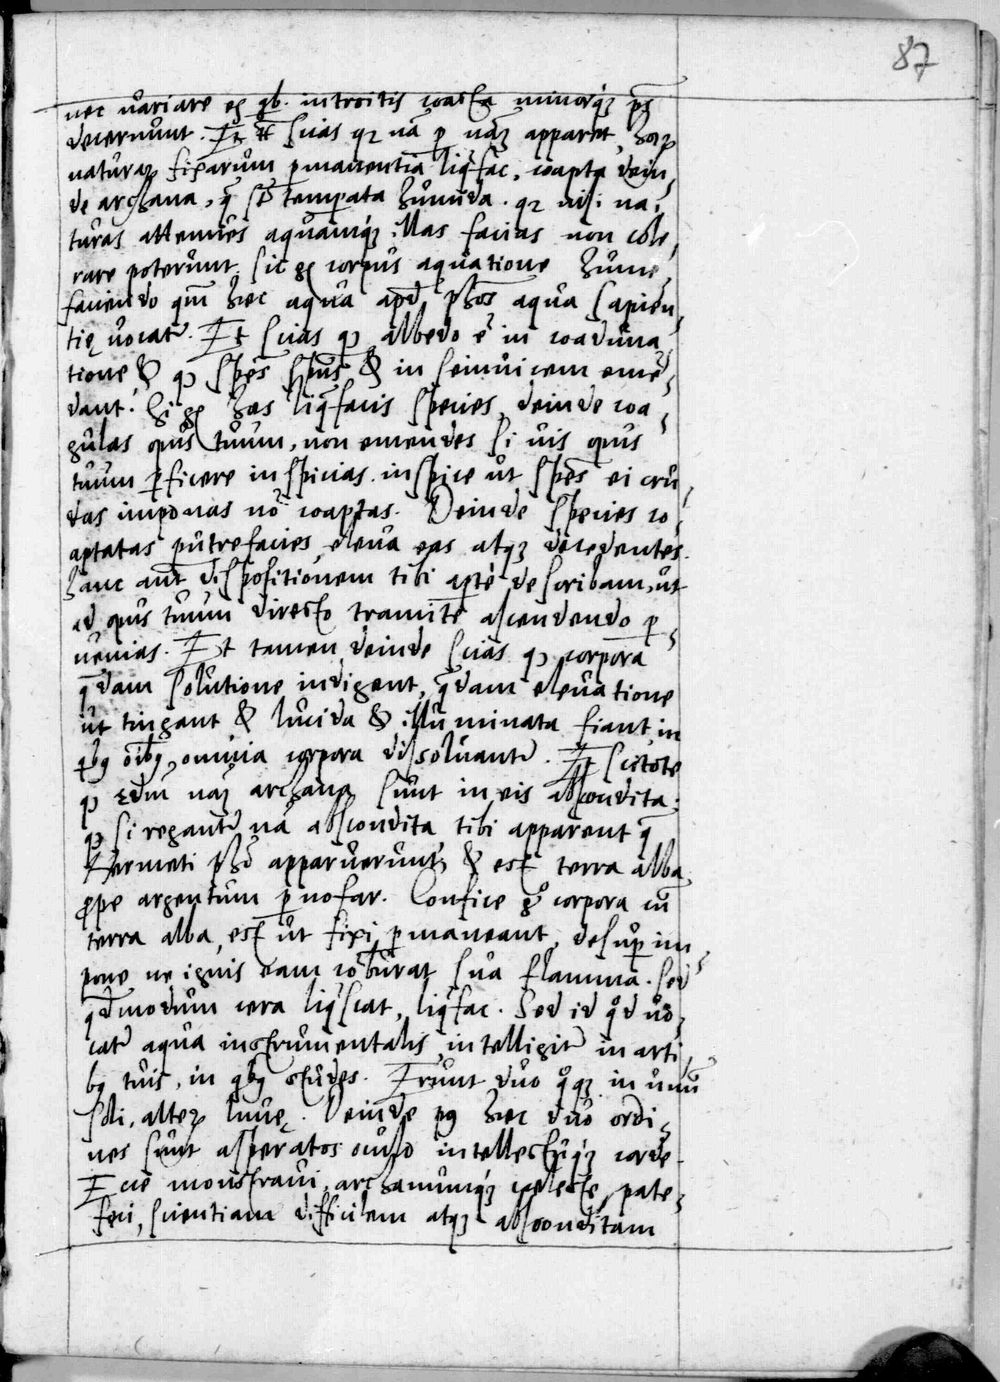 87
nec variare et qb. introitis coacta minorq́ꝫ ps
decernunt. Et tñ scias qꝛ nã p nãꝫ apparet, hoꝝ
naturaꝝ fixarum pmanentiã liqfac, coapta dein,
de archana, q̃ st temperata humida. qꝛ nisi na,
turas attenues aquamq́ꝫ illas facias non cole,
rare poterunt. sic gͦ corpus aquatione hume,
faciendo qm̃ hec aqua apd phõs aqua sapien,
tię vocat̃. Et scias ꝙ albedo ẽ in coaduna,
tione & ꝙ spẽs sp̃us & in seinvicem emẽ,
dant. Si gͦ has liqfacis species, deinde coa,
gulas opus tuum, non emendes si vis opus
tuum pficere inspicias. inspice ut spẽs ei cru,
das imponas nõ coaptas. Deinde species co,
aptatas putrefacies, eleva eas atqꝫ decedentes.
hanc aut̃ dispositionem tibi apte describam, ut
ad opus tuum directo tramite ascendendo p,
uenias. Et tamen deinde scias ꝙ corpora
q̃dam solutione indigent, q̃dam elevatione
ut tingant & lucida & illuminata fiant, in
qbꝫ oĩbꝫ omnia corpora dissoluant̃. Et scitote
ꝙ eoꝝ naꝫ archana sunt in eis abscondita:
ꝙ si regant̃ nã abscondita tibi apparent q̃
Hermeti phõ apparuerunt, & est terra alba
ꝓpe argentum p nosar. Confice gͦ corpora cũ
terra alba, est ut fixi pmaneant, desup im,
pone ne ignis eam cõburat sua flamma. Sed
qdmodum cera liqscat, liqfac. Sed id qd vo,
cat̃ aqua instrumentalis, intelligit̃ in arti,
bꝫ tuis, in qbꝫ studes. Erunt duo qqꝫ in unũ
soli, alteꝝ lunę. Deinde pꝰ hec duo ordi,
nes sunt asperatos oculo intellectuq́ꝫ corde.
Ecce monstraui, archanumq́ꝫ celeste, pate,
feci, scientiam difficilem atqꝫ absconditam